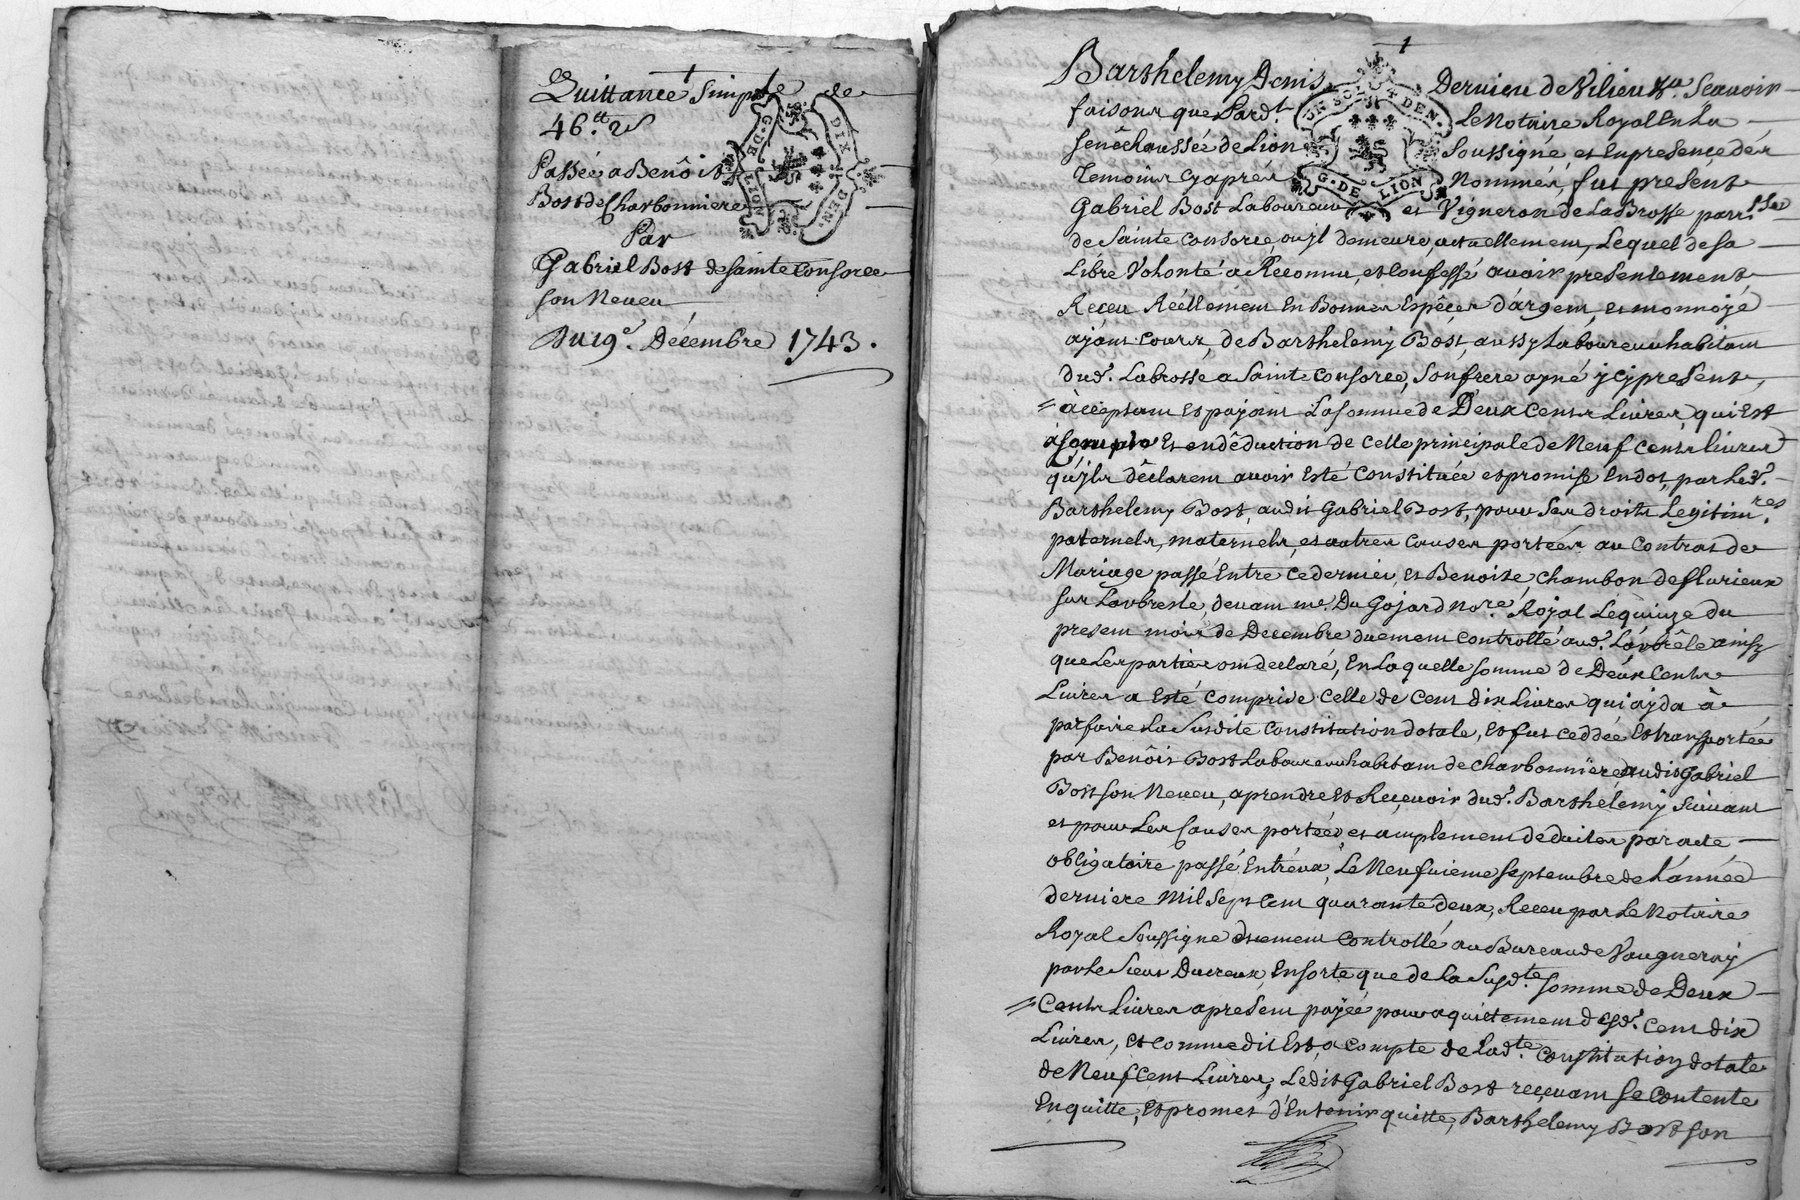 Quittance simple de
46tt 2s
Passée a Benôit
Bost de Charbonniere
Par
Gabriel Bost de sainte Consorce
son Neveu
Du 19e. Décembre 1743.
G. DE LION
DIX DEN.
1
Barthelemy Denis Dervieu de Vilieu Scavoir
faisons que Pard.t Le Notaire Royal En La
senêchaussée de Lion soussigné et En presence dés
Temoins cy aprés Nommés, fut present
Gabriel Bost Laboureur et Vigneron de La Brosse parr.sse
de Sainte Consorce, ou jl demeure actuellement, Lequel de sa
Libre Volonté a Reconnu, et Confessé avoir presentement
Receu Réellement En Bonnes Espêces d'argent, et monnoyé
ayant Cours, de Barthelemy Bost, aussy Laboureur habitant
dud. Labrosse a Sainte Consorce, son frere ayné jcy present,
àcceptant et payant La somme de Deux Cents Livres, qui Est
à Compte Et en dêduction de Celle principale de Neuf Cents livres
qu'jls dêclarent avoir Esté Constituée et promise En dot, par Led.
Barthelemy Bost, audit Gabriel Bost, pour ses droits Legitim.res
paternels, maternels, et autres Causes portées au Contrat de
Mariage passé Entre Ce dernier, et Benoite Chambon de fleurieux
sur Larbresle, devant me. Du Gojard nore. Royal Le quinze du
present mois de Decembre duement Controllé aud. Lârbrêle ainsy
que Les parties ont declaré, En Laquelle somme de Deux Cents
Livres a Esté Comprise Celle de Cent dix Livres qui ayda à
parfaire La Susdite Constitution dotale, et fut Ceddée Et transportée
par Benôit Bost Laboureur habitant de Charbonniere audit Gabriel
Bost son Neveu, a prendre et Reçevoir dud. Barthélemy suivant
et pour Les Causes portées et amplement déduites par acte
obligatoire passé Entr'eux Le Neufvieme septembre de L'année
derniere Mil Sept Cent quarante deux, Receu par Le Notaire
Royal Soussigne duement Controllé au Bureau de Vaugneray
par Le Sieur Ducreux, En sorte que de La susd.te somme de Deux
Cents Livres a present payée pour aquittement desd. Cent dix
Livres, et comme dit Est a compte de Lad.te Constitution dotale
de Neuf Cent Livres, Ledit Gabriel Bost reçevant se Contente
En quitte, et promet d'En tenir quitte, Barthelemy Bost son
UN SOL 4 DEN.
G. DE LION